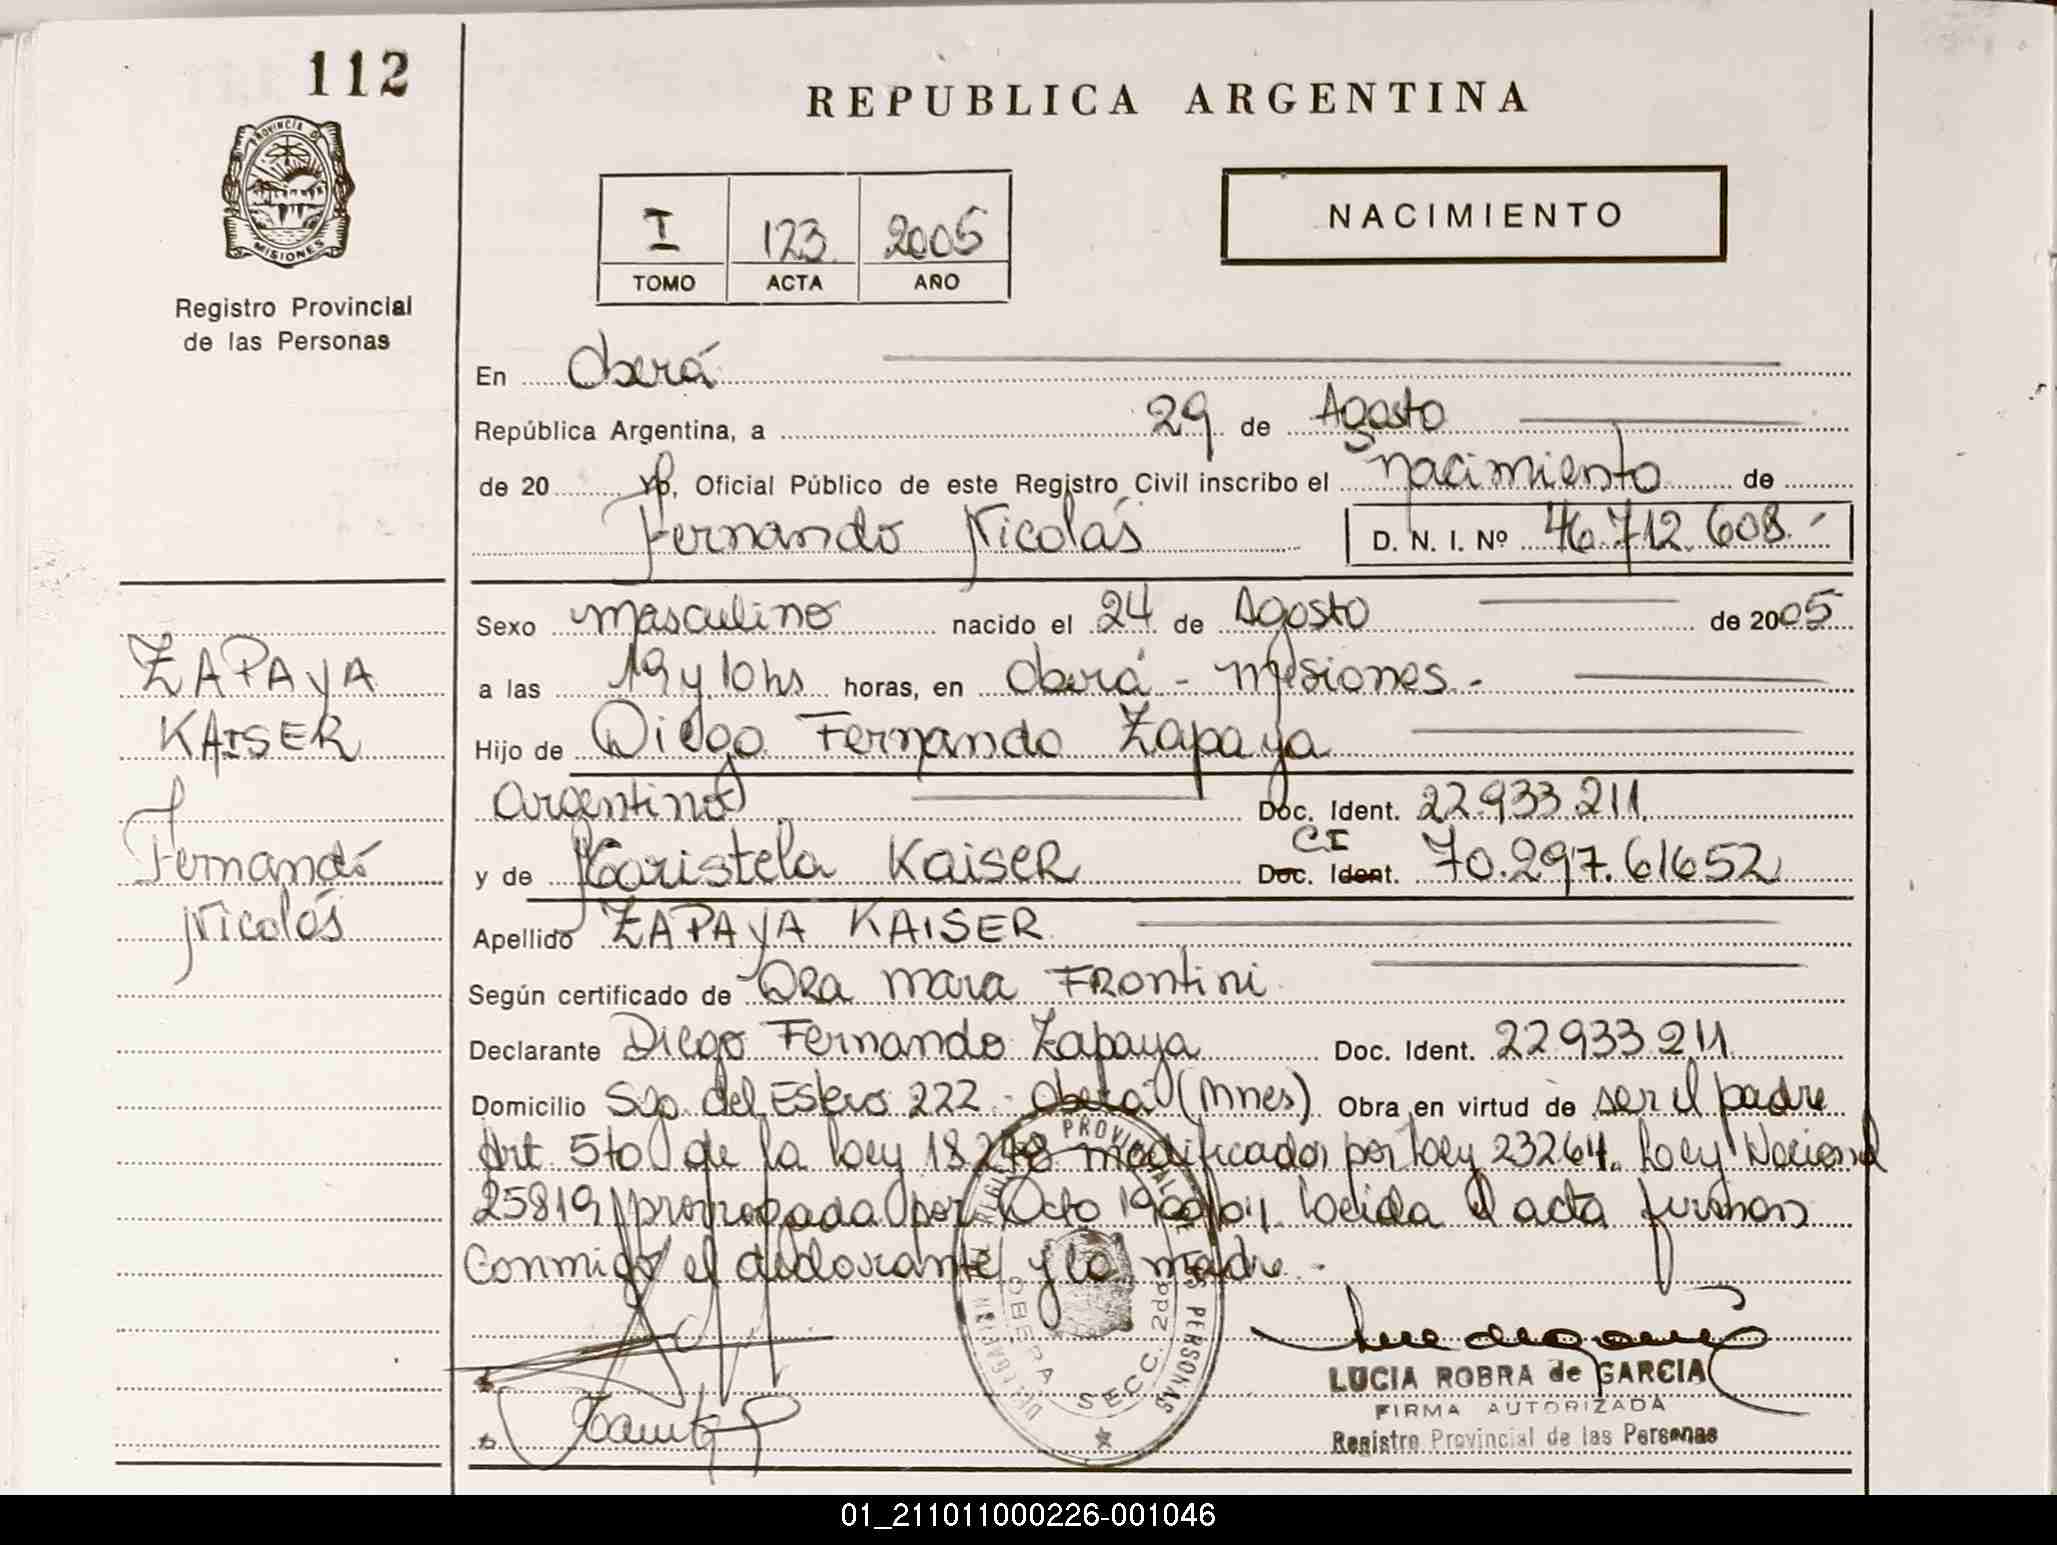 112
REPUBLICA ARGENTINA
PROVINCIA D
MISIONES
Registro Provincial
de las Personas
I 123 2005
TOMO ACTA AÑO
NACIMIENTO
En Oberá
República Argentina, a 29 de Agosto
de 20 yo, Oficial Público de este Registro Civil inscribo el nacimiento de
Fernando Nicolás D. N. I. Nº 46.712.608.-
Sexo masculino nacido el 24 de Agosto de 2005
ZAPAYA
a las 19 y 10 hs horas, en Oberá - Misiones.-
KAISER
Hijo de Diego Fernando Zapaya
Argentino Doc. Ident. 22.933.211.
Fernando
CI
y de Maristela Kaiser Doc. Ident. 70.297.61652
Nicolás
Apellido ZAPAYA KAISER
Según certificado de Dra Mara Frontini
Declarante Diego Fernando Zapaya Doc. Ident. 22.933.211
Domicilio Sgo. del Estero 222 - Oberá (Mnes) Obra en virtud de ser el padre
Art 5to de la Ley 18248 modificado por Ley 23264. Ley Nacional
25819 prorrogada por Dcto 1900/04. Leída el acta firman
Conmigo el declarante y la madre.-
PROVINCIAL DE LAS PERSONAS
OBERA SECC. 2da
LUCIA ROBRA de GARCIA
FIRMA AUTORIZADA
Registro Provincial de las Personas
01_211011000226-001046